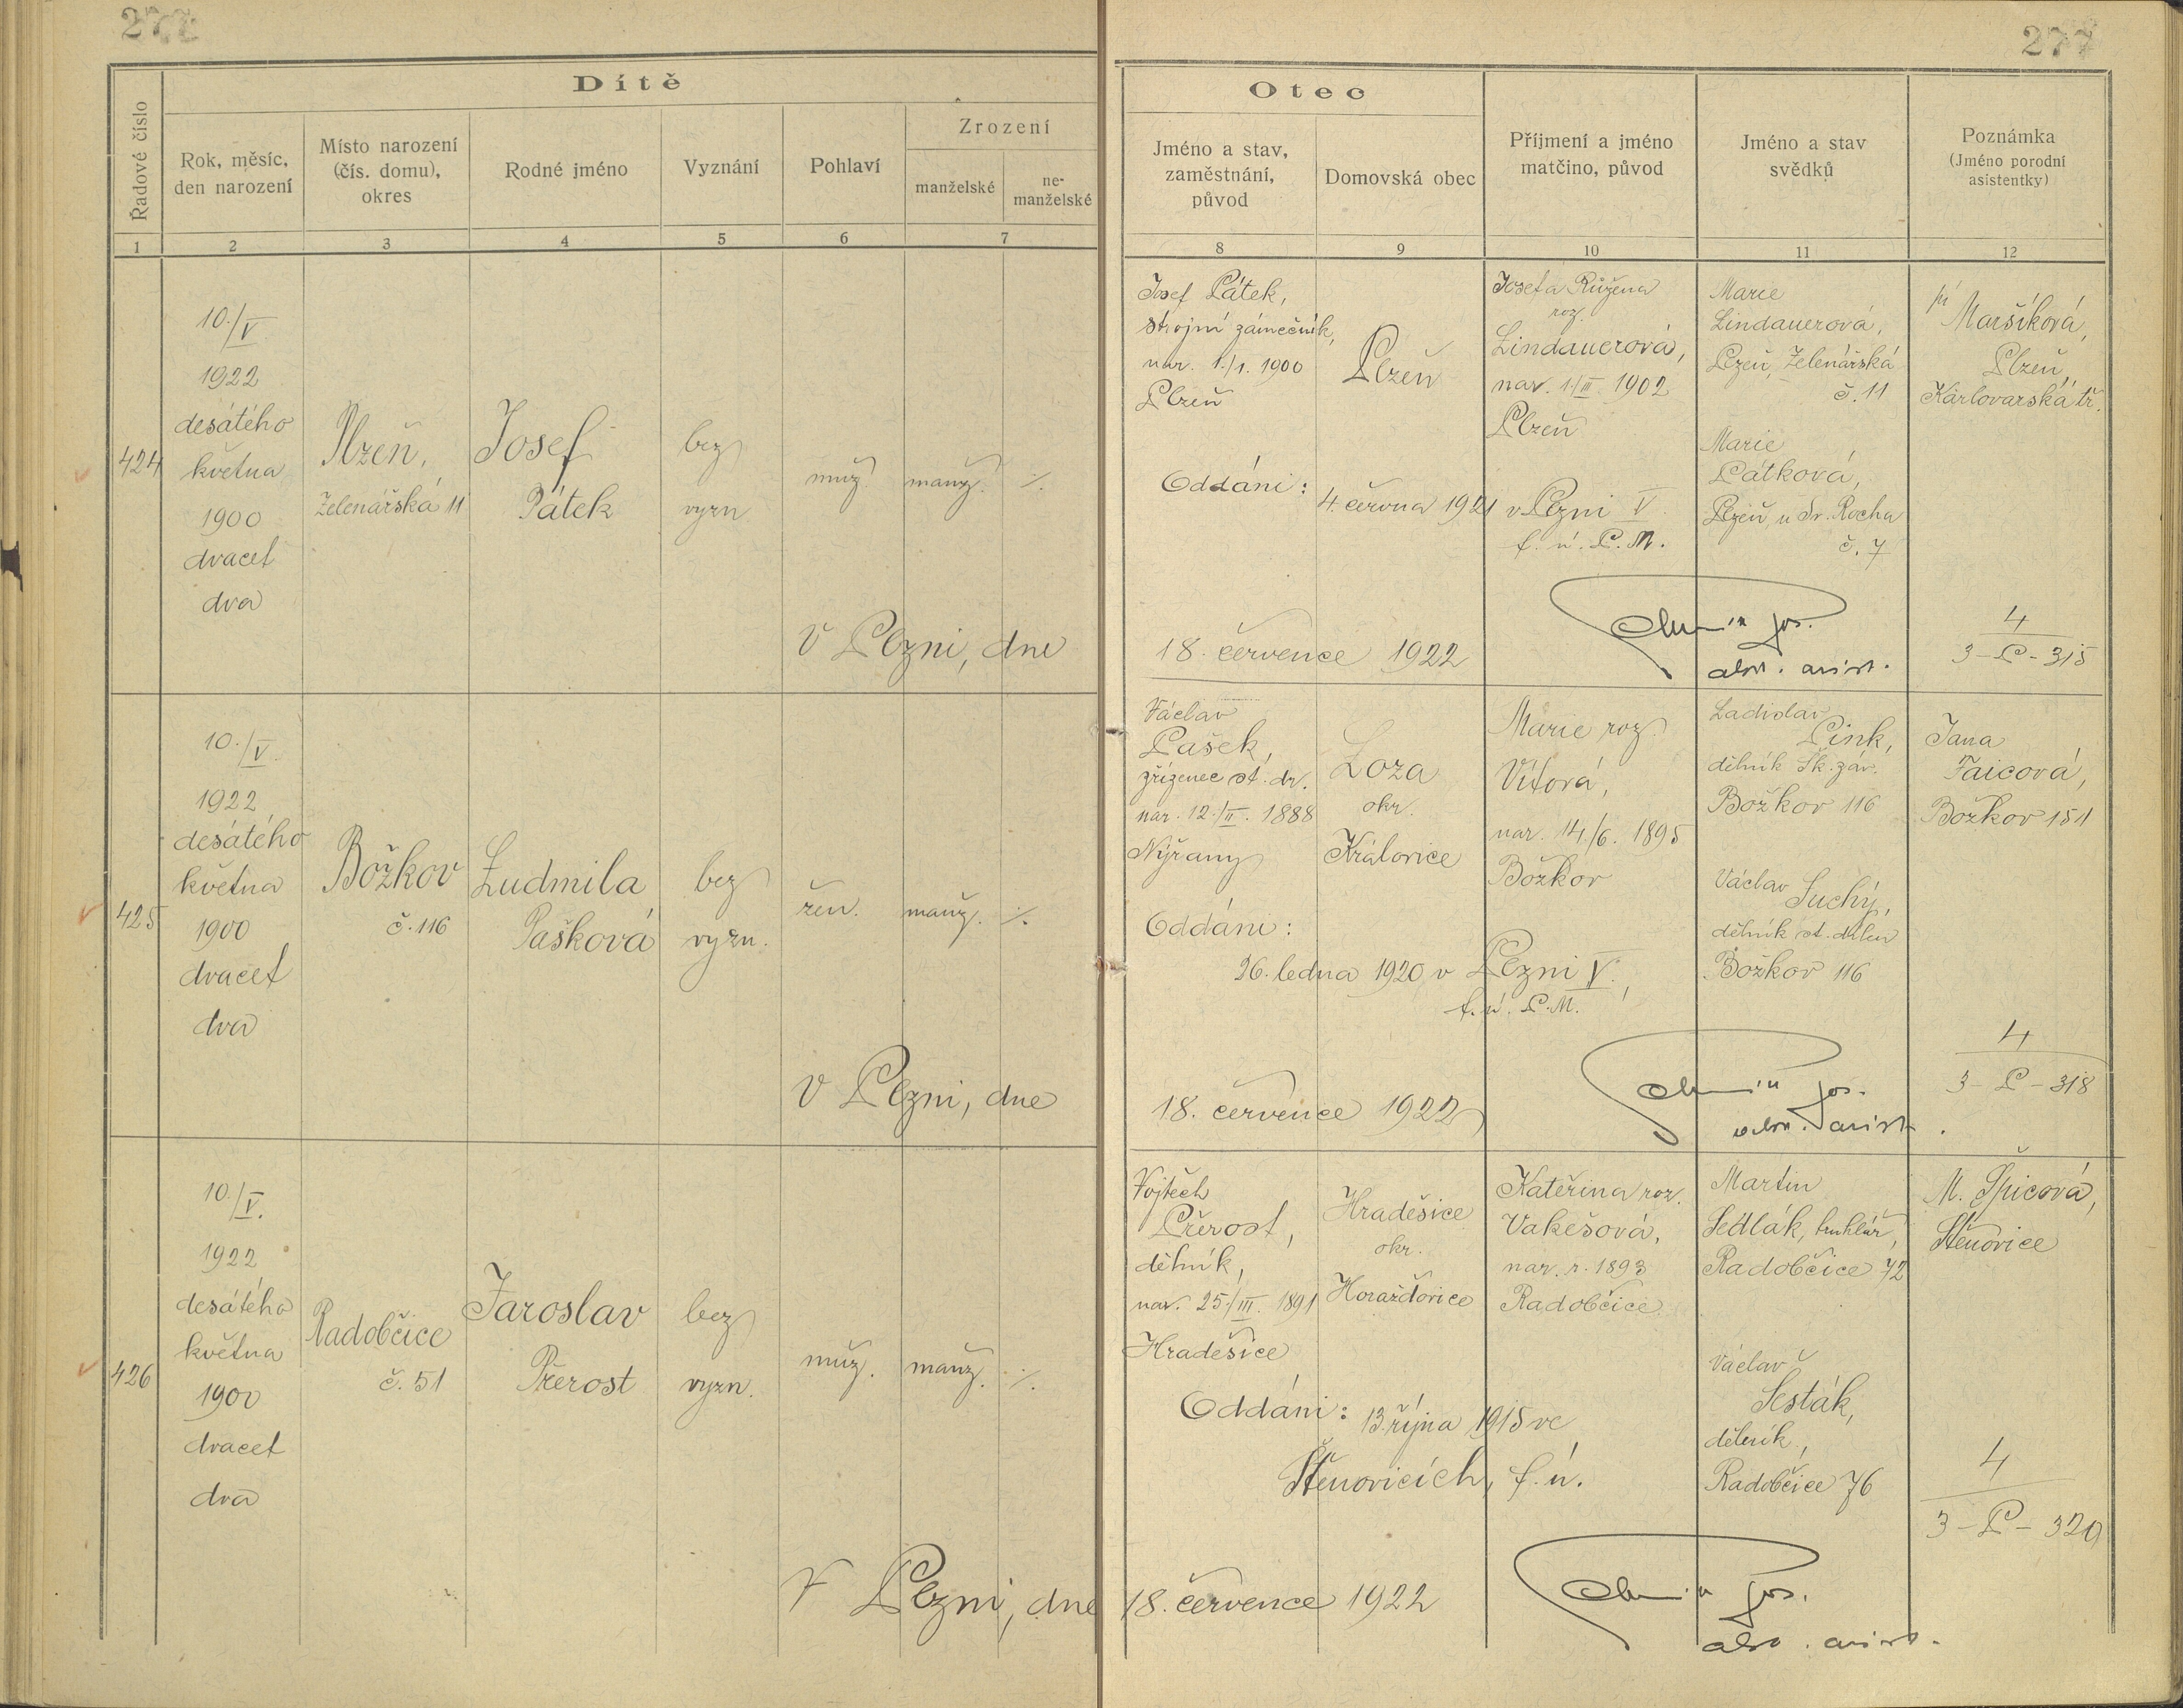 277
277
Dítě
Otec
Řadové číslo
Rok, měsíc,
den narození
Místo narození
(čís. domu),
okres
Rodné jméno
Vyznání
Pohlaví
Zrození
manželské
ne-
manželské
Jméno a stav,
zaměstnání,
původ
Domovská obec
Příjmení a jméno
matčino, původ
Jméno a stav
svědků
Poznámka
(Jméno porodní
asistentky)
1 2 3 4 5 6 7 8 9 10 11 12
424
10./V
1922
desátého
května
1900
dvacet
dva
Plzeň,
Želenářská 11
Josef
Pátek
bez
vyzn
muž.
manž.
Josef Pátek,
strojní zámečník,
nar. 1./1. 1900
Plzeň
Plzeň
Josefa Růžena
roz.
Lindauerová,
nar. 1./III 1902
Plzeň
Marie
Lindauerová,
Plzeň, Želenářská
č. 11
Marie
Pátková,
Plzeň, u Sv. Rocha
č. 7
Maršíková,
Plzeň,
Karlovarská tř.
Oddáni:
4. června 1921 v Plzni V
f. ú. P. M.
V Plzni, dne 18. července 1922
4
3-P-315
425
10./V.
1922
desátého
května
1900
dvacet
dva
Božkov
č. 116
Ludmila
Pašková
bez
vyzn.
žen.
manž.
Václav
Pašek,
zřízenec st. dr.
nar. 12./II. 1888
Nýřany
Loza
okr.
Kralovice
Marie roz.
Vítová,
nar. 14./6. 1895
Božkov
Ladislav
Pink,
dělník Šk. záv.
Božkov 116
Václav
Suchý,
dělník st. dílen
Božkov 116
Jana
Faicová,
Božkov 151
Oddáni:
26. ledna 1920 v Plzni V.,
f. ú. P. M.
V Plzni, dne 18. července 1922
4
3-P-318
426
10./V.
1922
desátého
května
1900
dvacet
dva
Radobčice
č. 51
Jaroslav
Přerost
bez
vyzn.
muž.
manž.
Vojtěch
Přerost,
dělník,
nar. 25./III. 1891
Hradešice
Hradešice
okr.
Horažďovice
Kateřina roz.
Vakešová,
nar. r. 1893
Radobčice
Martin
Sedlák, truhlář,
Radobčice 72
Václav
Šesták,
dělník,
Radobčice 76
M. Špicová,
Štěnovice
Oddáni: 13. října 1915 ve
Štěnovicích, f. ú.
V Plzni, dne 18. července 1922
4
3-P-320